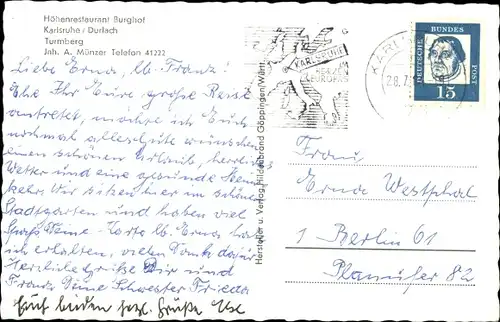 Höhenrestaurant Burghof
Karlsruhe / Durlach
Turmberg
Jnh. A. Münzer Telefon 41222
Liebe Erna, lb. Franz!
Ehe Ihr Eure große Reise
antretet, möchte ich Euch
nochmal alles gute wünschen
einen schönen Urlaub, herrliches
Wetter und eine gesunde Heim
kehr. Wir sitzen hier im schönen
Stadtgarten und haben viel
Spaß. Deine Karte lb. Erna hab
ich erhalten, vielen Dank dafür
Herzliche Grüße Dir und
Franz Deine Schwester Frieda
Euch beiden herzl. Grüße
Hersteller u. Verlag Hildebrand Göppingen/Württ.
KARLSRUHE
HERZEN
EUROPAS
G
KARL
28.7.
DEUTSCHE
BUNDES
POST
15
Frau
Erna Westphal
1 Berlin 61
Planufer 82